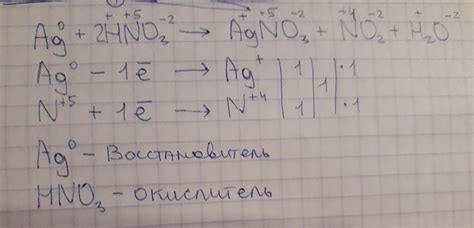 Ag⁰ + 2H⁺N⁺⁵O₃⁻² → Ag⁺N⁺⁵O₃⁻² + N⁺⁴O₂⁻² + H₂⁺O⁻²
Ag⁰ − 1ē → Ag⁺ | 1 | | ·1
N⁺⁵ + 1ē → N⁺⁴ | 1 | 1 | ·1
Ag⁰ – Восстановитель
HNO₃ – окислитель